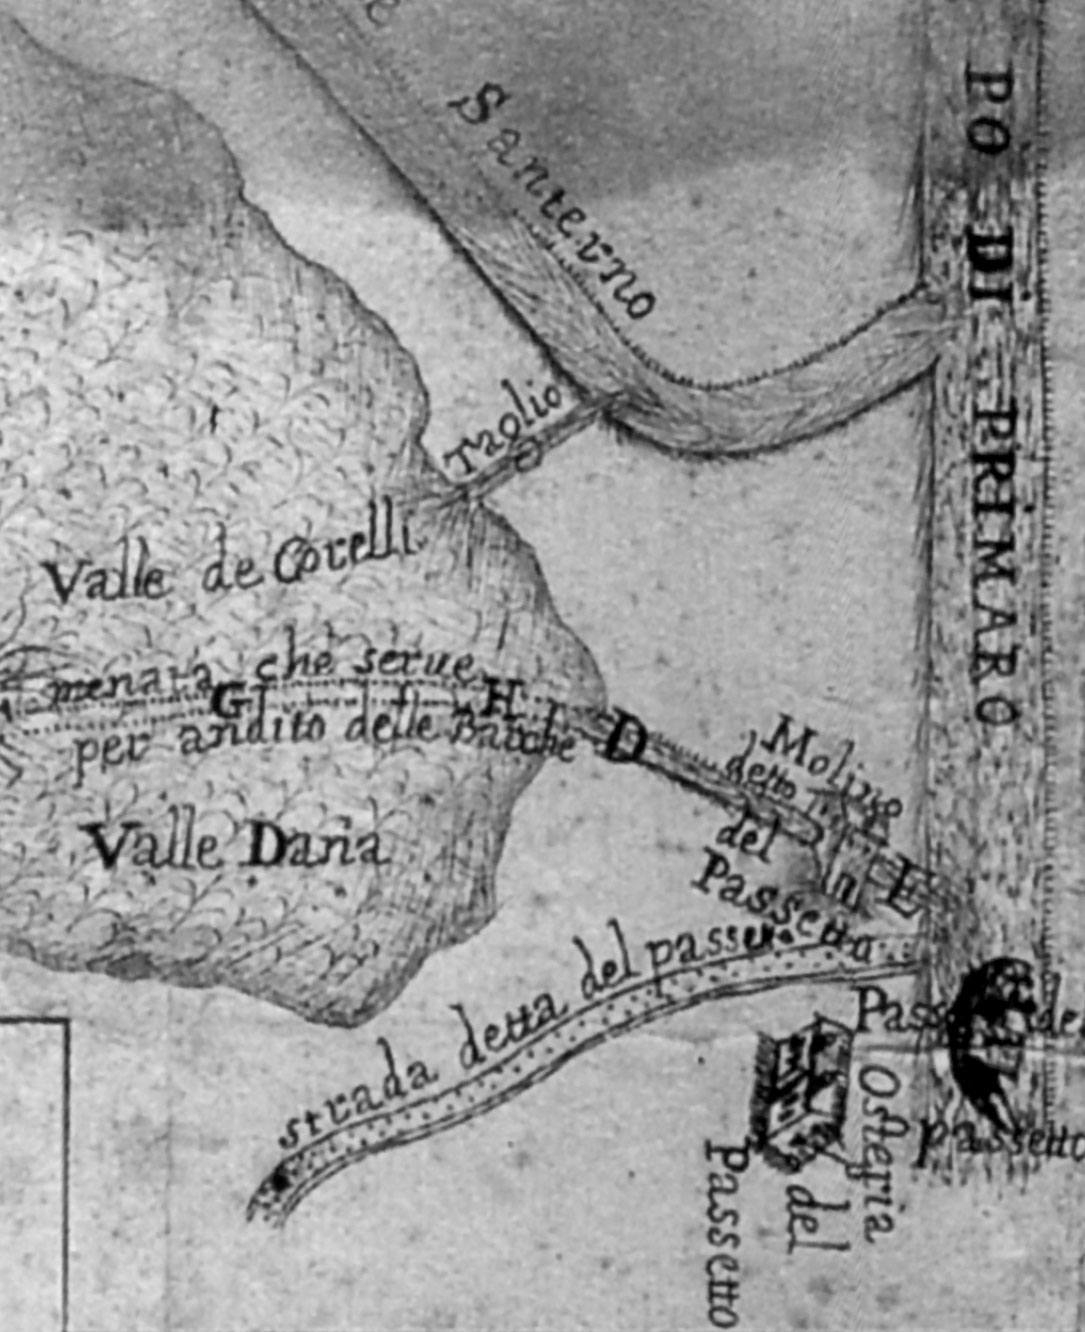 Santerno
PO DI PRIMARO
Taglio
Valle de Corelli
menara che serue
G H
per andito delle Barche
D
Molino
detto
del
in E
Passetto
Valle Dana
strada detta del passetto
Pass
passetto
Osteria
del
Passetto